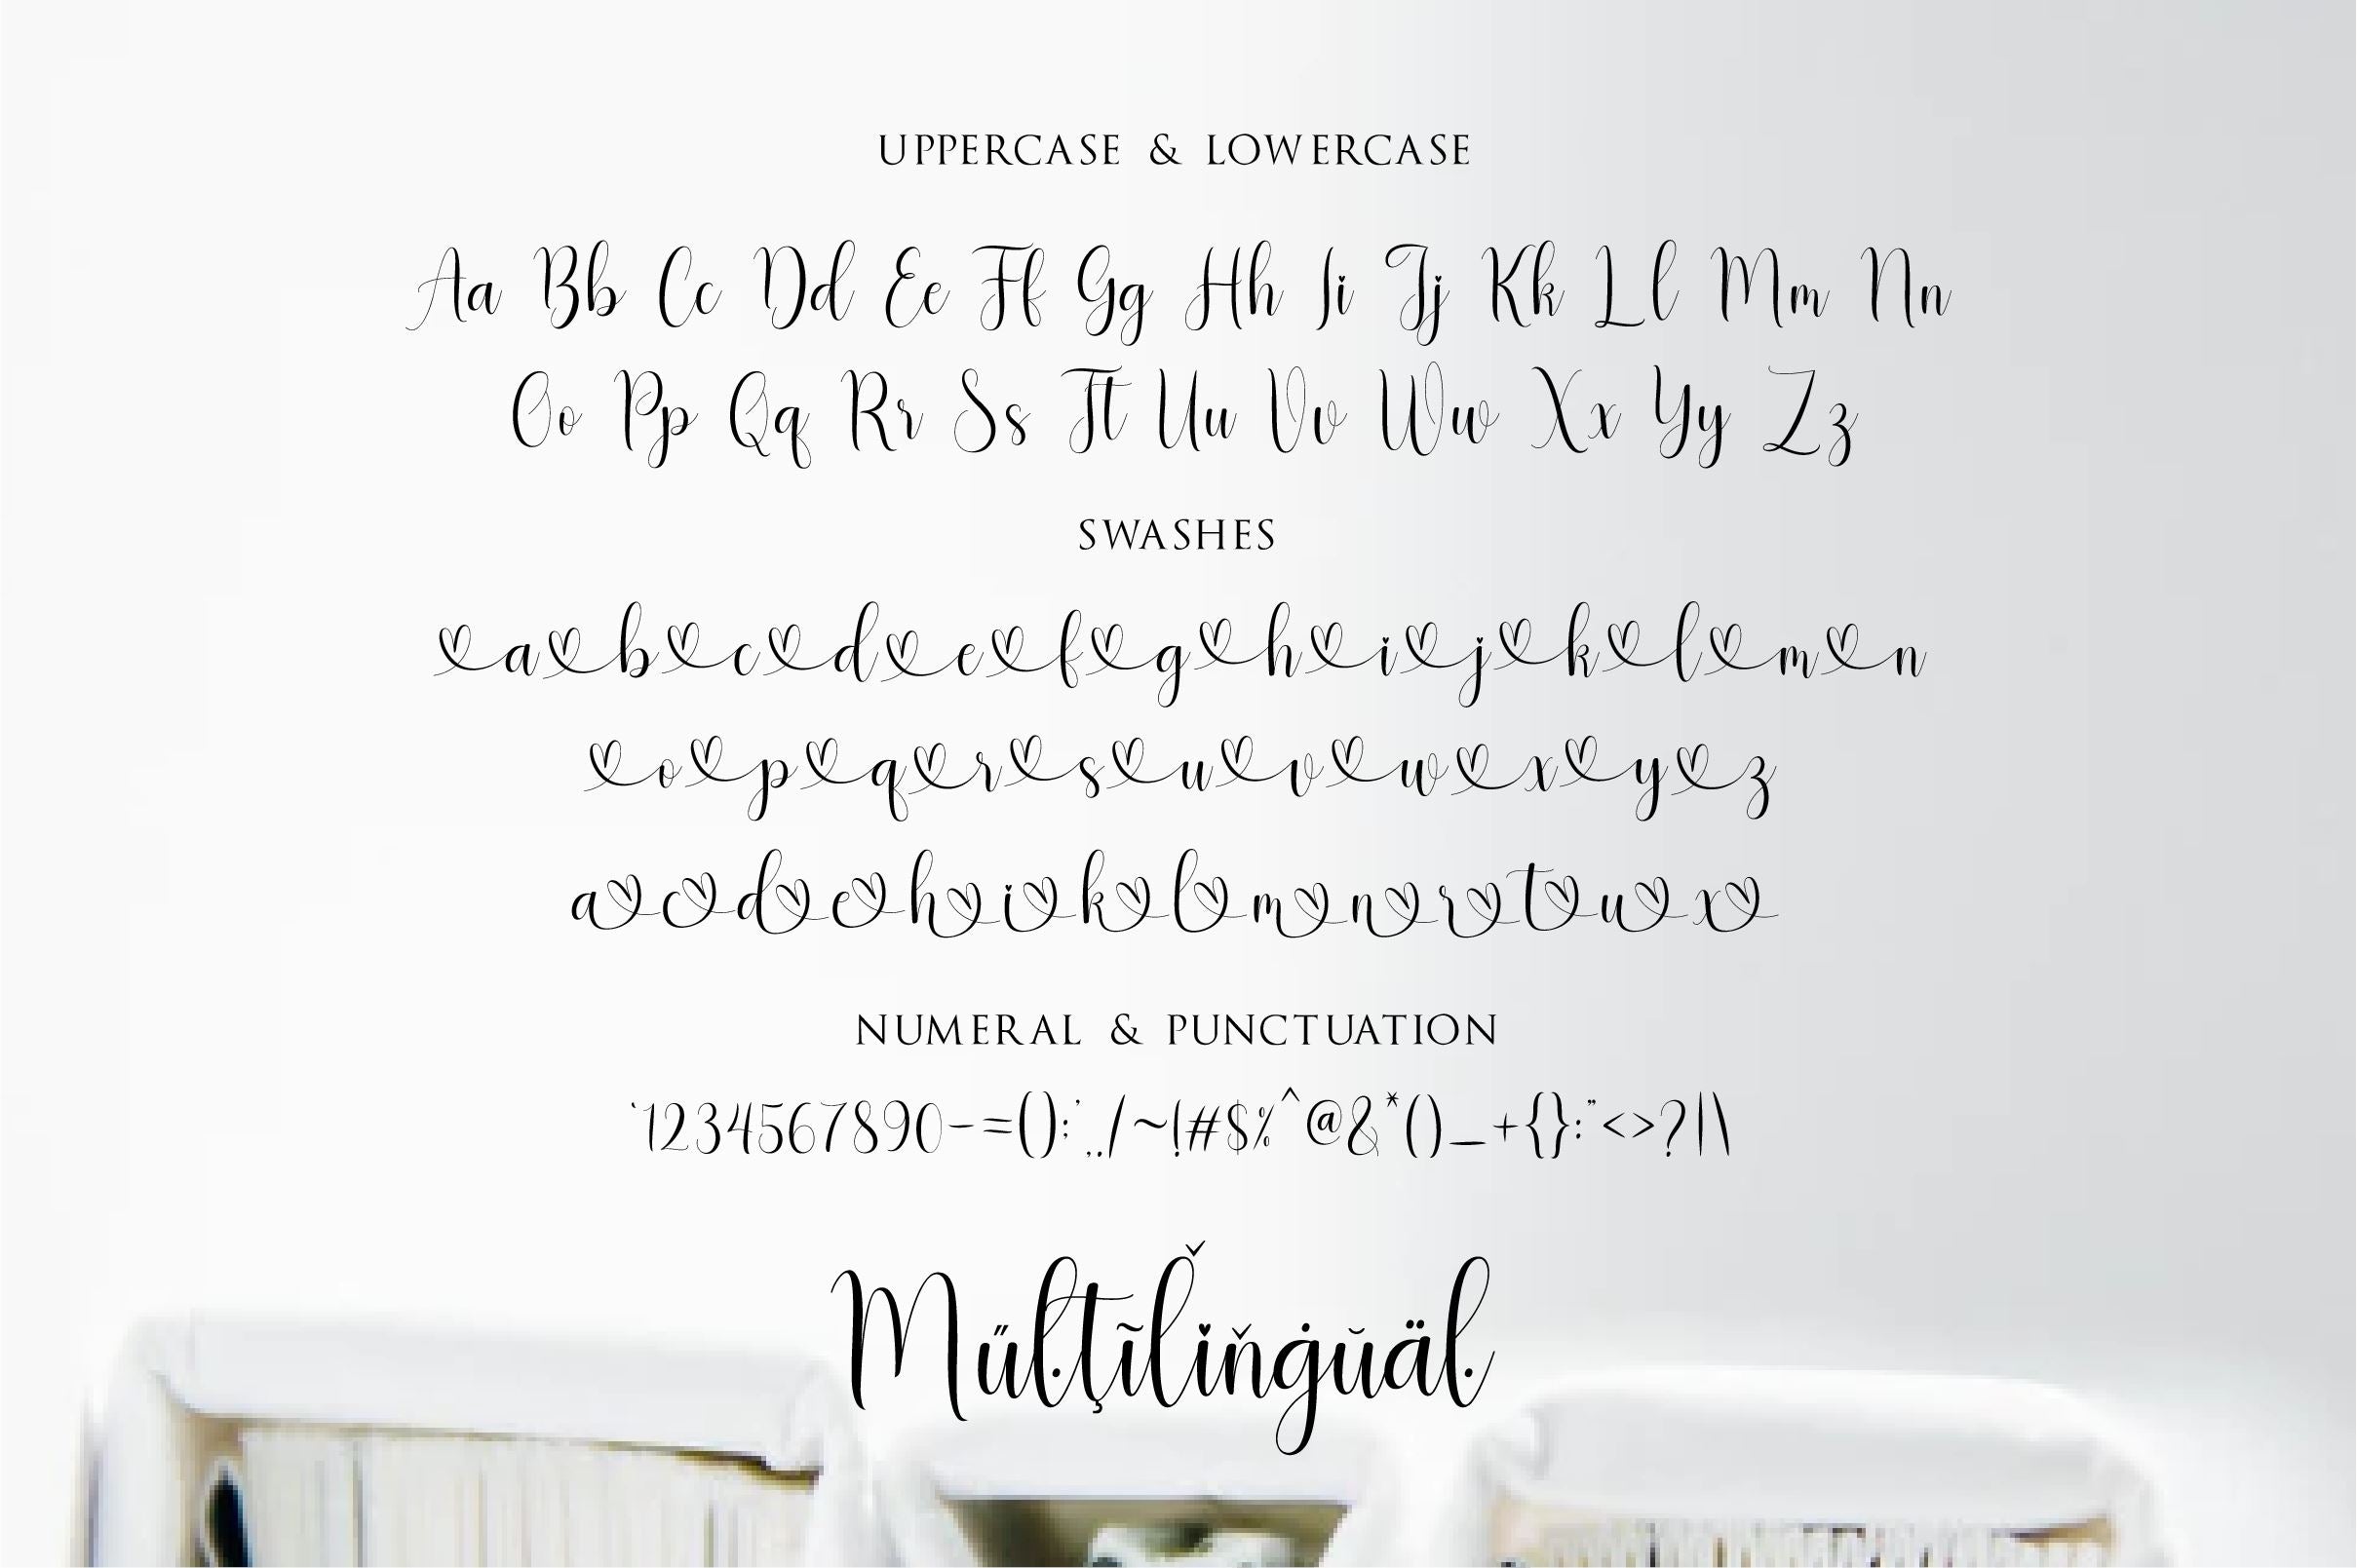 UPPERCASE & LOWERCASE
Aa Bb Cc Dd Ee Ff Gg Hh Ii Jj Kk Ll Mm Nn
Oo Pp Qq Rr Ss Tt Uu Vv Ww Xx Yy Zz
SWASHES
a b c d e f g h i j k l m n
o p q r s u v w x y z
a c d e h i k l m n r t u x
NUMERAL & PUNCTUATION
`1234567890-=();',./~!#$%^@&*()_+{}:"<>?|\
Műŀţĩľiňġŭäŀ